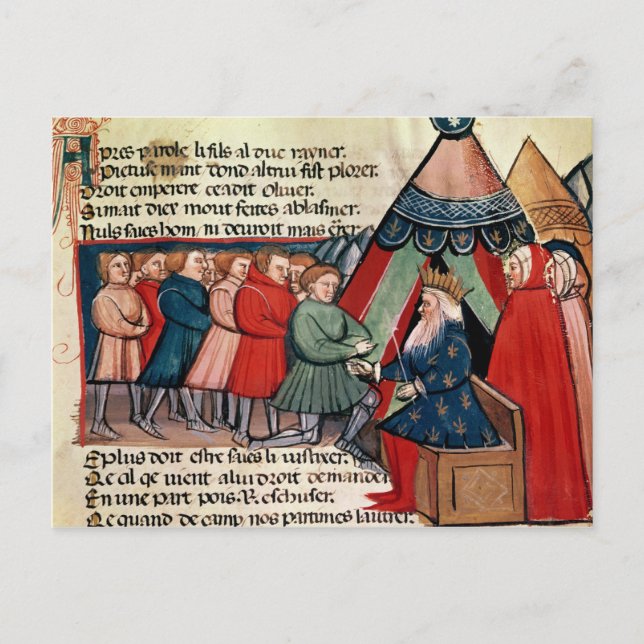 Apres parole li fils al duc rayner.
Pietusemant dond altrui fist plorer.
Droit emperere ce a dit oliuer.
Si mait diex mout feites a blasmer.
Nuls saies hom ni deuroit mais
E plus doit estre saies li
Qe cil qe uient a lui droit demander
En une part pois R. eschuser.
Qe quand de camp nos partimes lautrer.